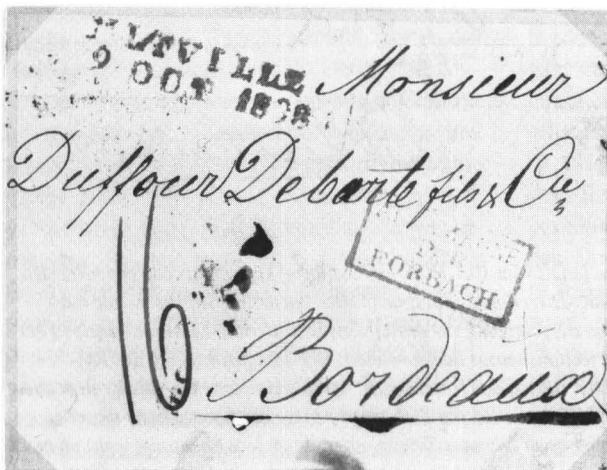 ELTVILLE
OCT
Monsieur
Duffour Debarte fils & Cie
PAR
FORBACH
Bordeaux